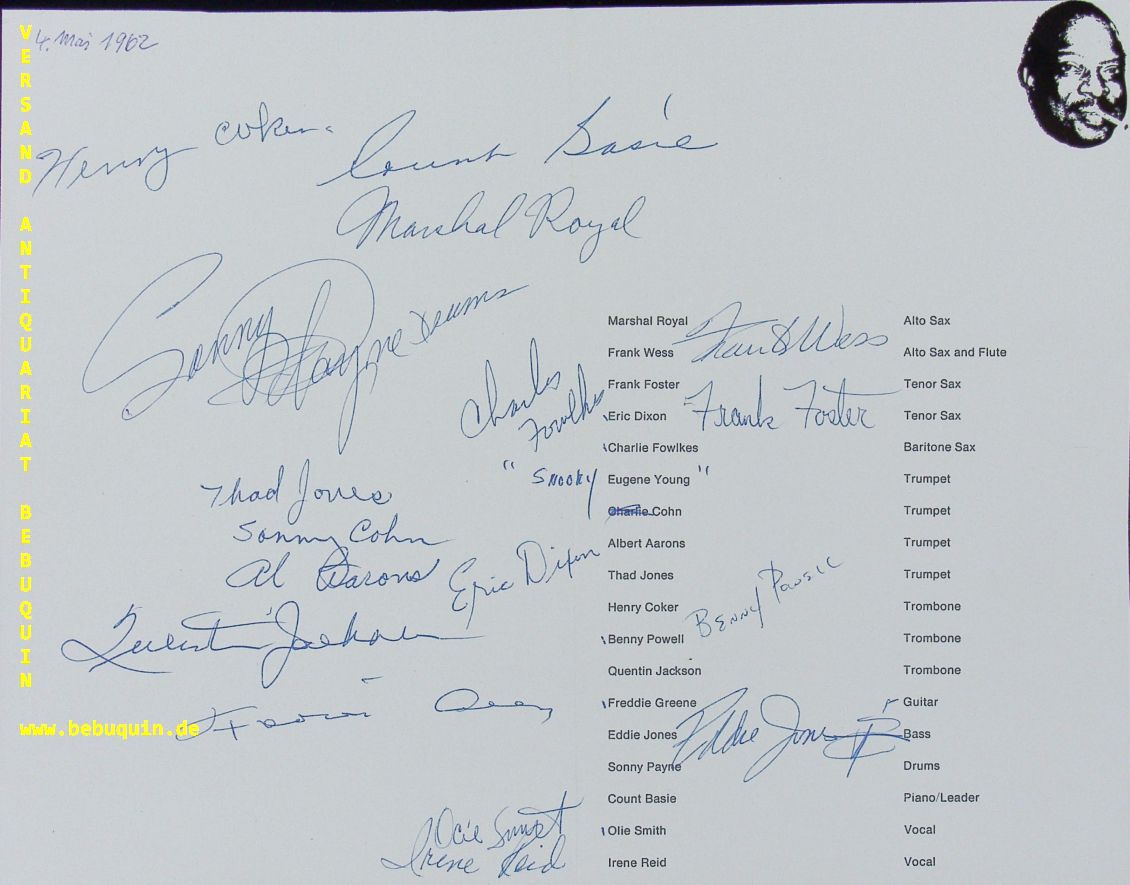 VERSAND ANTIQUARIAT BEBUQUIN
www.bebuquin.de
4. Mai 1962
Henry Coker
Count Basie
Marshal Royal
Sonny Payne Drums
Marshal Royal Alto Sax
Frank Wess
Frank Wess Alto Sax and Flute
Frank Foster Tenor Sax
Frank Foster
Eric Dixon Tenor Sax
Charles Fowlkes
Charlie Fowlkes Baritone Sax
"Snooky Eugene Young " Trumpet
Charlie Cohn Trumpet
Albert Aarons Trumpet
Thad Jones Trumpet
Henry Coker Trombone
Benny Powell Trombone
Quentin Jackson Trombone
Freddie Greene Guitar
Eddie Jones Bass
Sonny Payne Drums
Count Basie Piano/Leader
Olie Smith Vocal
Irene Reid Vocal
Thad Jones
Sonny Cohn
Al Aarons
Eric Dixon
Quentin Jackson
Benny
Eddie Jones
Ocie
Irene Reid